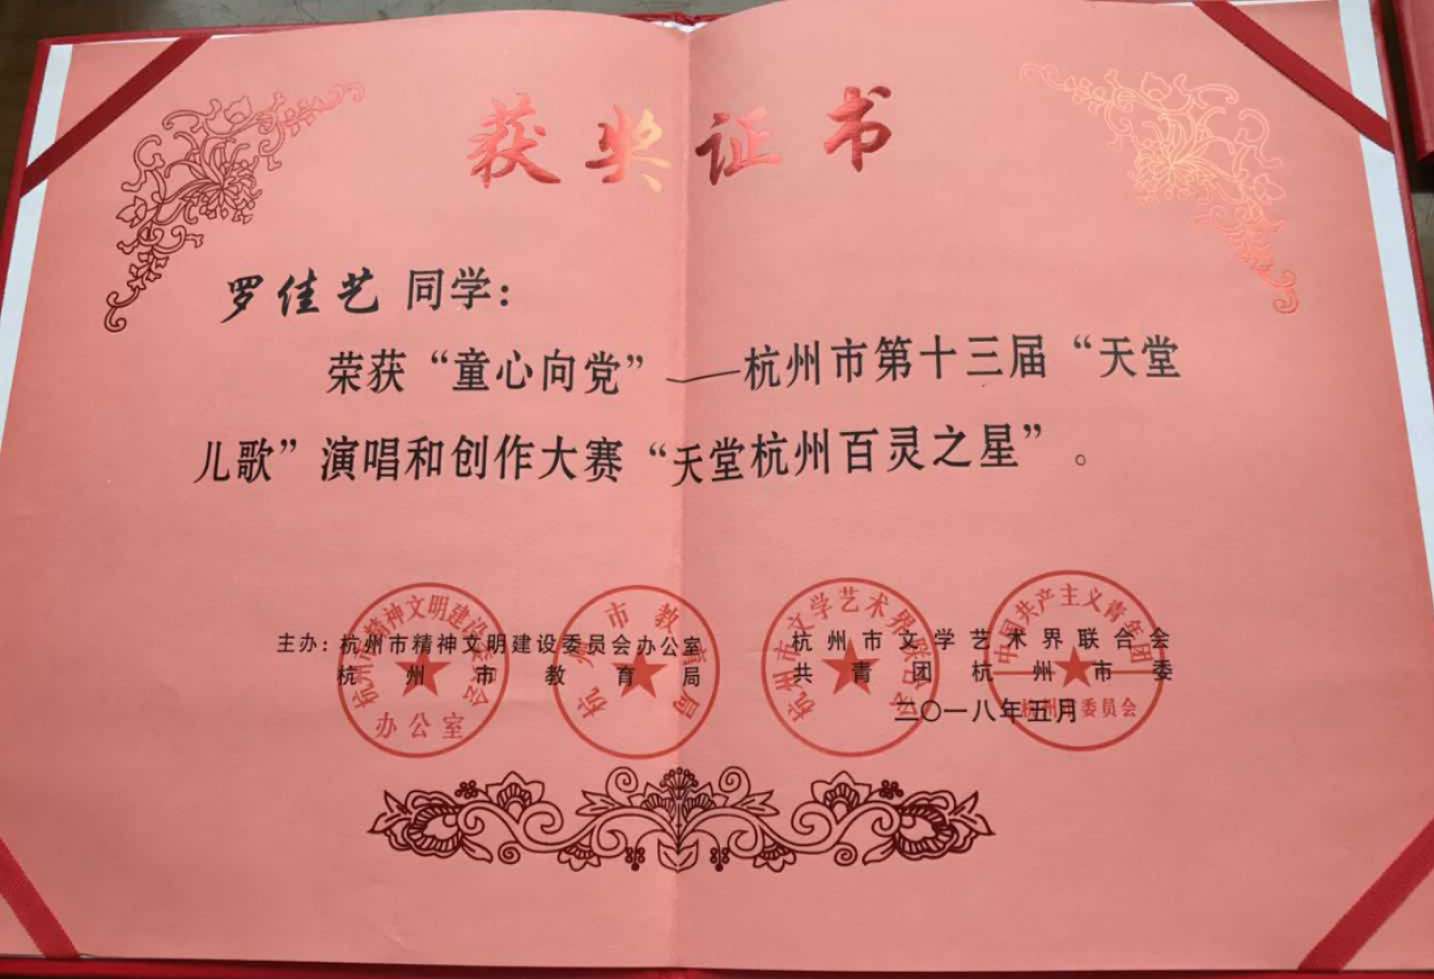 获奖证书
罗佳艺 同学：
荣获“童心向党”——杭州市第十三届“天堂
儿歌”演唱和创作大赛“天堂杭州百灵之星”。
主办：杭州市精神文明建设委员会办公室
杭州市教育局
杭州市文学艺术界联合会
共青团杭州市委
二〇一八年五月
杭州市精神文明建设委员会
办公室
杭州市教育局
杭州市文学艺术界联合会
中国共产主义青年团
杭州市委员会